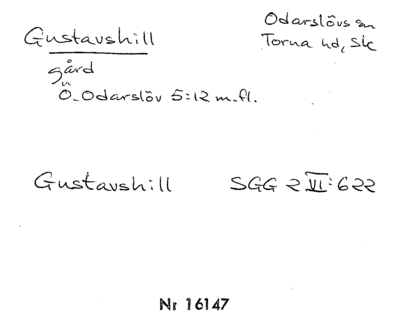 Gustavshill
Odarslövs sn
Torna hd, Sk
gård
Ö. Odarslöv 5:12 m.fl.
Gustavshill SGG 2 VI:622
Nr 16147